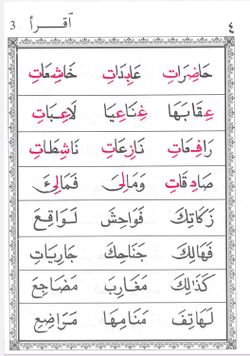 ٤ اَقْـرَأْ 3
حَاضِرَاتِ عَابِدَاتِ خَاشِعَاتِ
عِقَابَهَا غِنَاعِيَا لَاعِبَاتِ
رَافِعَاتِ نَازِعَاتِ نَاشِطَاتِ
صَادِقَاتِ وَمَالِىَ فَمَالِىَٔ
زَكَاتِكَ فَوَاحِشَ لَوَاقِعَ
فَهَالِكَ جَنَاحِكَ جَارِيَاتِ
كَذَلِكَ مَغَارِبَ مَضَاجِعَ
لَهَاتِفَ مَنَامِهَا مَرَاضِعَ